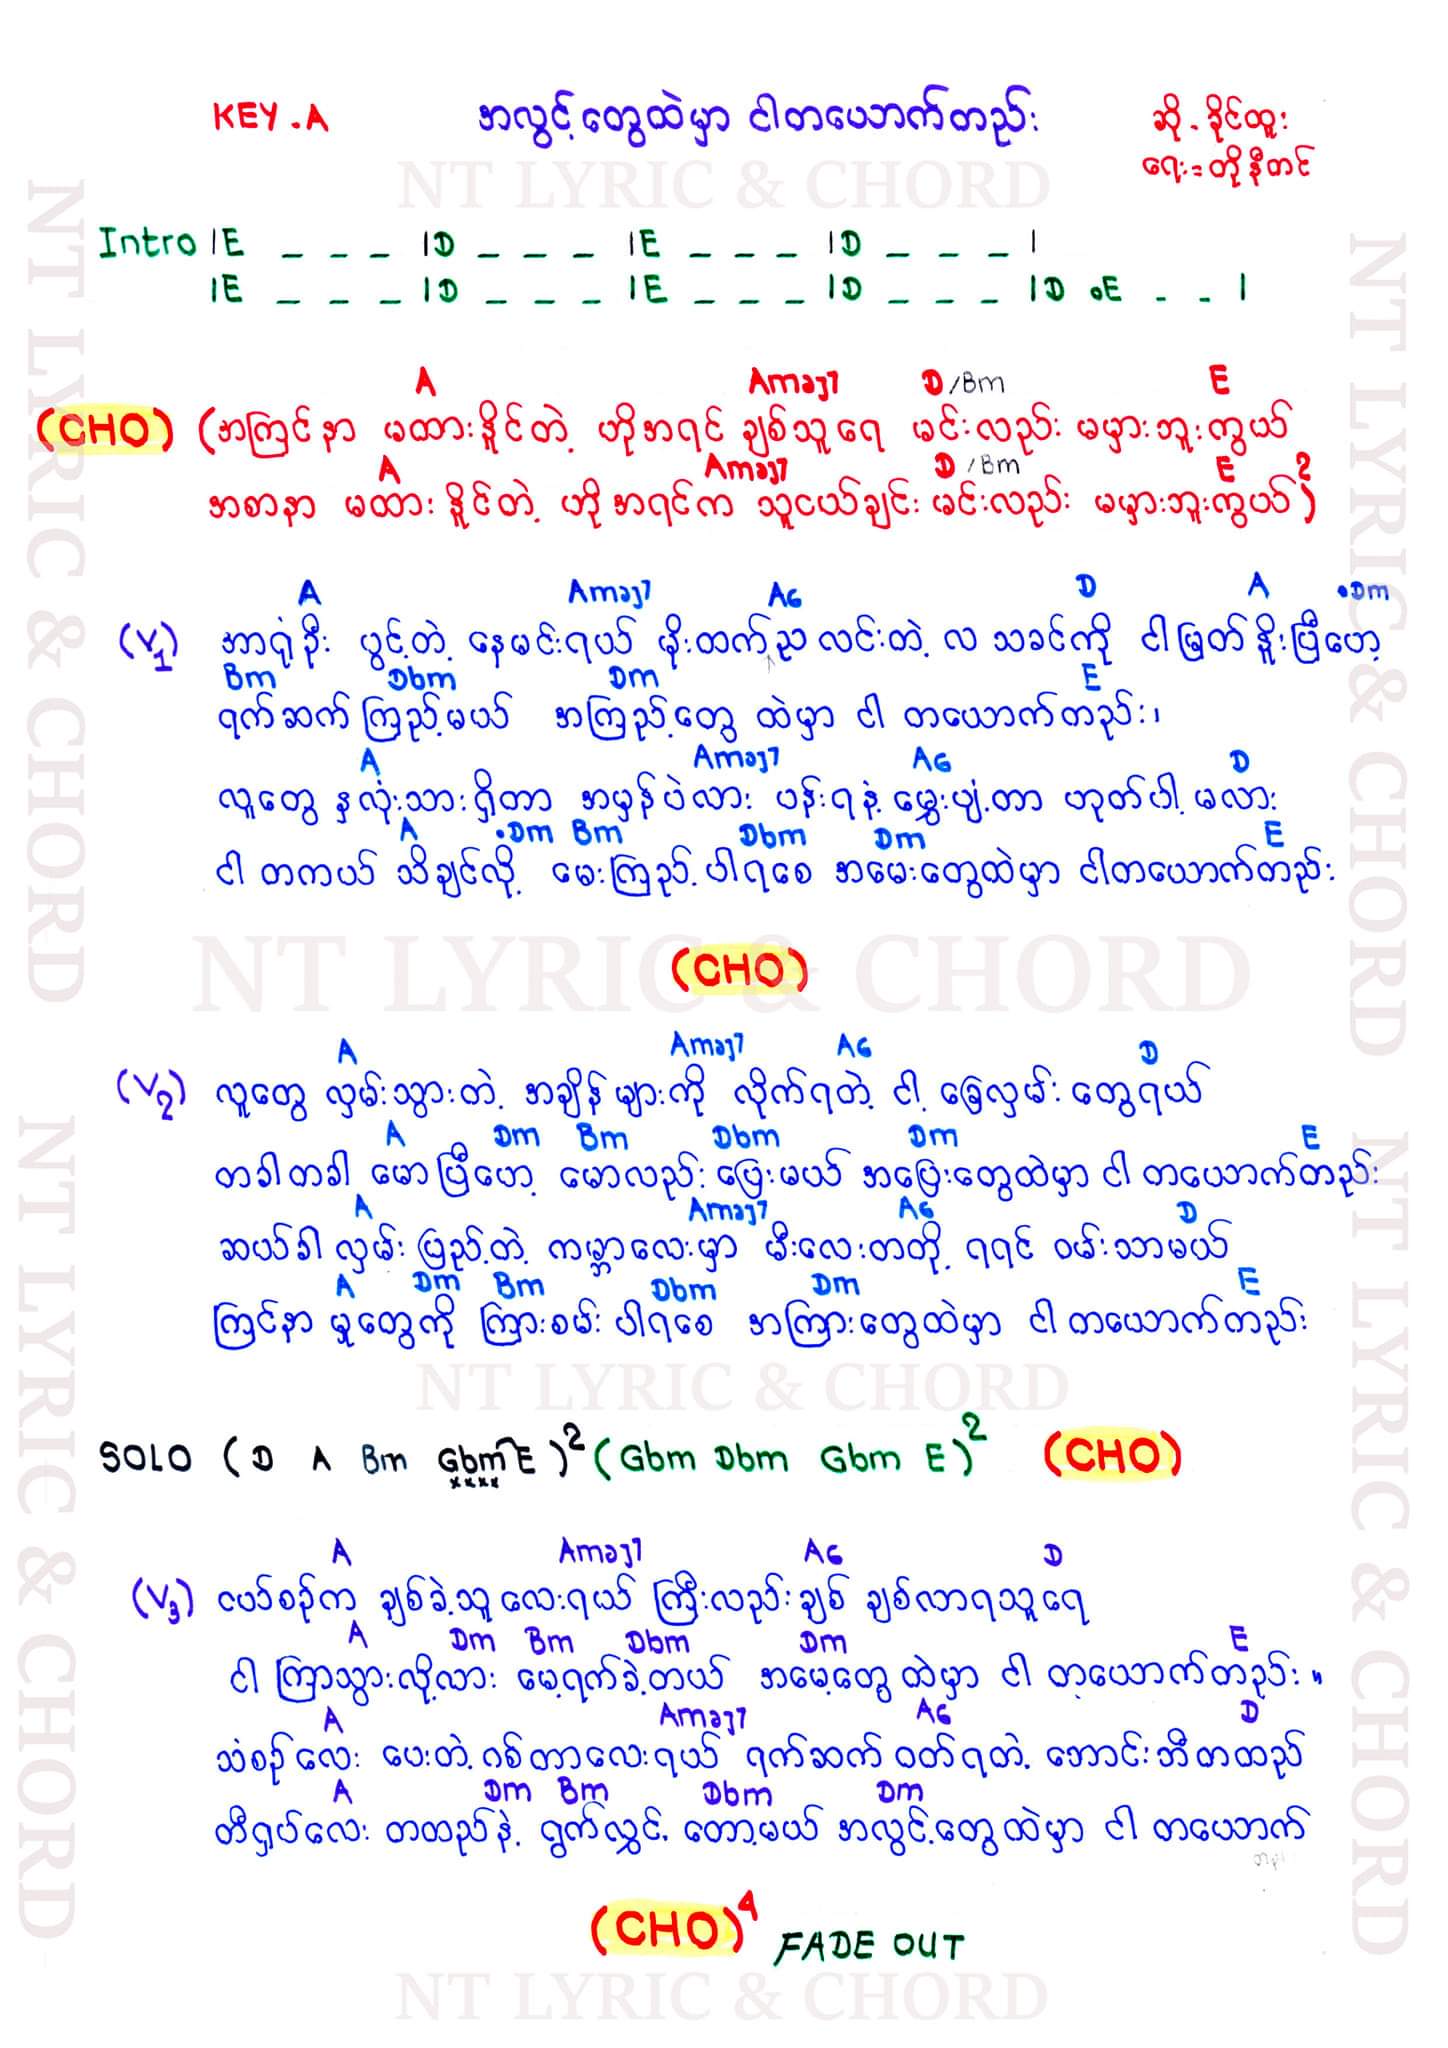 KEY.A အလွင့်တွေထဲမှာ ငါတယောက်တည်း ဆို - ခိုင်ထူး
ရေး = တိုနီတင်
NT LYRIC & CHORD
Intro |E _ _ _ |D _ _ _ |E _ _ _ |D _ _ _ |
|E _ _ _ |D _ _ _ |E _ _ _ |D _ _ _ |D .E - - |
A Amaj7 D/Bm E
(CHO) (အကြင်နာ မထားနိူင်တဲ့ ဟိုအရင် ချစ်သူရေ မင်းလည်း မမှားဘူးကွယ်
A Amaj7 D/Bm E
အစာနာ မထားနိူင်တဲ့ ဟိုအရင်က သူငယ်ချင်း မင်းလည်း မမှားဘူးကွယ်)2
A Amaj7 A6 D A .Dm
(V1) အာရုံဦး ပွင့်တဲ့ နေမင်းရယ် မိုးထက်ည လင်းတဲ့ လ သခင်ကို ငါ မြတ်နိူးပြီဟေ့
Bm Dbm Dm E
ရက်ဆက် ကြည့်မယ် အကြည့်တွေ ထဲမှာ ငါ တယောက်တည်း၊
A Amaj7 A6 D
လူတွေ နှလုံးသားရှိတာ အမှန်ပဲလား ပန်းရနံ့ မွှေးပျံ့တာ ဟုတ်ပါ့ မလား
A .Dm Bm Dbm Dm E
ငါ တကယ် သိချင်လို့ မေးကြည့် ပါရစေ အမေးတွေထဲမှာ ငါတယောက်တည်း
NT LYRIC & CHORD
(CHO)
A Amaj7 A6 D
(V2) လူတွေ လှမ်းသွားတဲ့ အချိန်များကို လိုက်ရတဲ့ ငါ့ ခြေလှမ်း တွေရယ်
A Dm Bm Dbm Dm E
တခါတခါ မောပြီဟေ့ မောလည်း ပြေးမယ် အပြေးတွေထဲမှာ ငါ တယောက်တည်း
A Amaj7 A6 D
ဆယ်ခါ လှမ်း ပြည့်တဲ့ ကမ္ဘာလေးမှာ မီးလေးတတို့ ရရင် ဝမ်းသာမယ်
A Dm Bm Dbm Dm E
ကြင်နာ မှုတွေကို ကြားစမ်း ပါရစေ အကြားတွေထဲမှာ ငါ တယောက်တည်း
NT LYRIC & CHORD
SOLO (D A Bm Gbm E)2 (Gbm Dbm Gbm E)2 (CHO)
xxxx
A Amaj7 A6 D
(V3) ငယ်စဉ်က ချစ်ခဲ့သူ လေးရယ် ကြီးလည်းချစ် ချစ်လာရသူရေ
A Dm Bm Dbm Dm E
ငါ ကြာသွားလို့လား မေ့ရက်ခဲ့တယ် အမေ့တွေ ထဲမှာ ငါ တယောက်တည်း။
A Amaj7 A6 D
သံစဉ်လေး ပေးတဲ့ ဂစ်တာလေးရယ် ရက်ဆက် ဝတ်ရတဲ့ ဘောင်းဘီတထည်
A Dm Bm Dbm Dm
တီရှပ်လေး တထည်နဲ့ ရွက်လွှင့် တော့မယ် အလွင့်တွေထဲမှာ ငါ တယောက်
(CHO)4 FADE OUT
NT LYRIC & CHORD
NT LYRIC & CHORD
NT LYRIC & CHORD
NT LYRIC & CHORD
NT LYRIC & CHORD